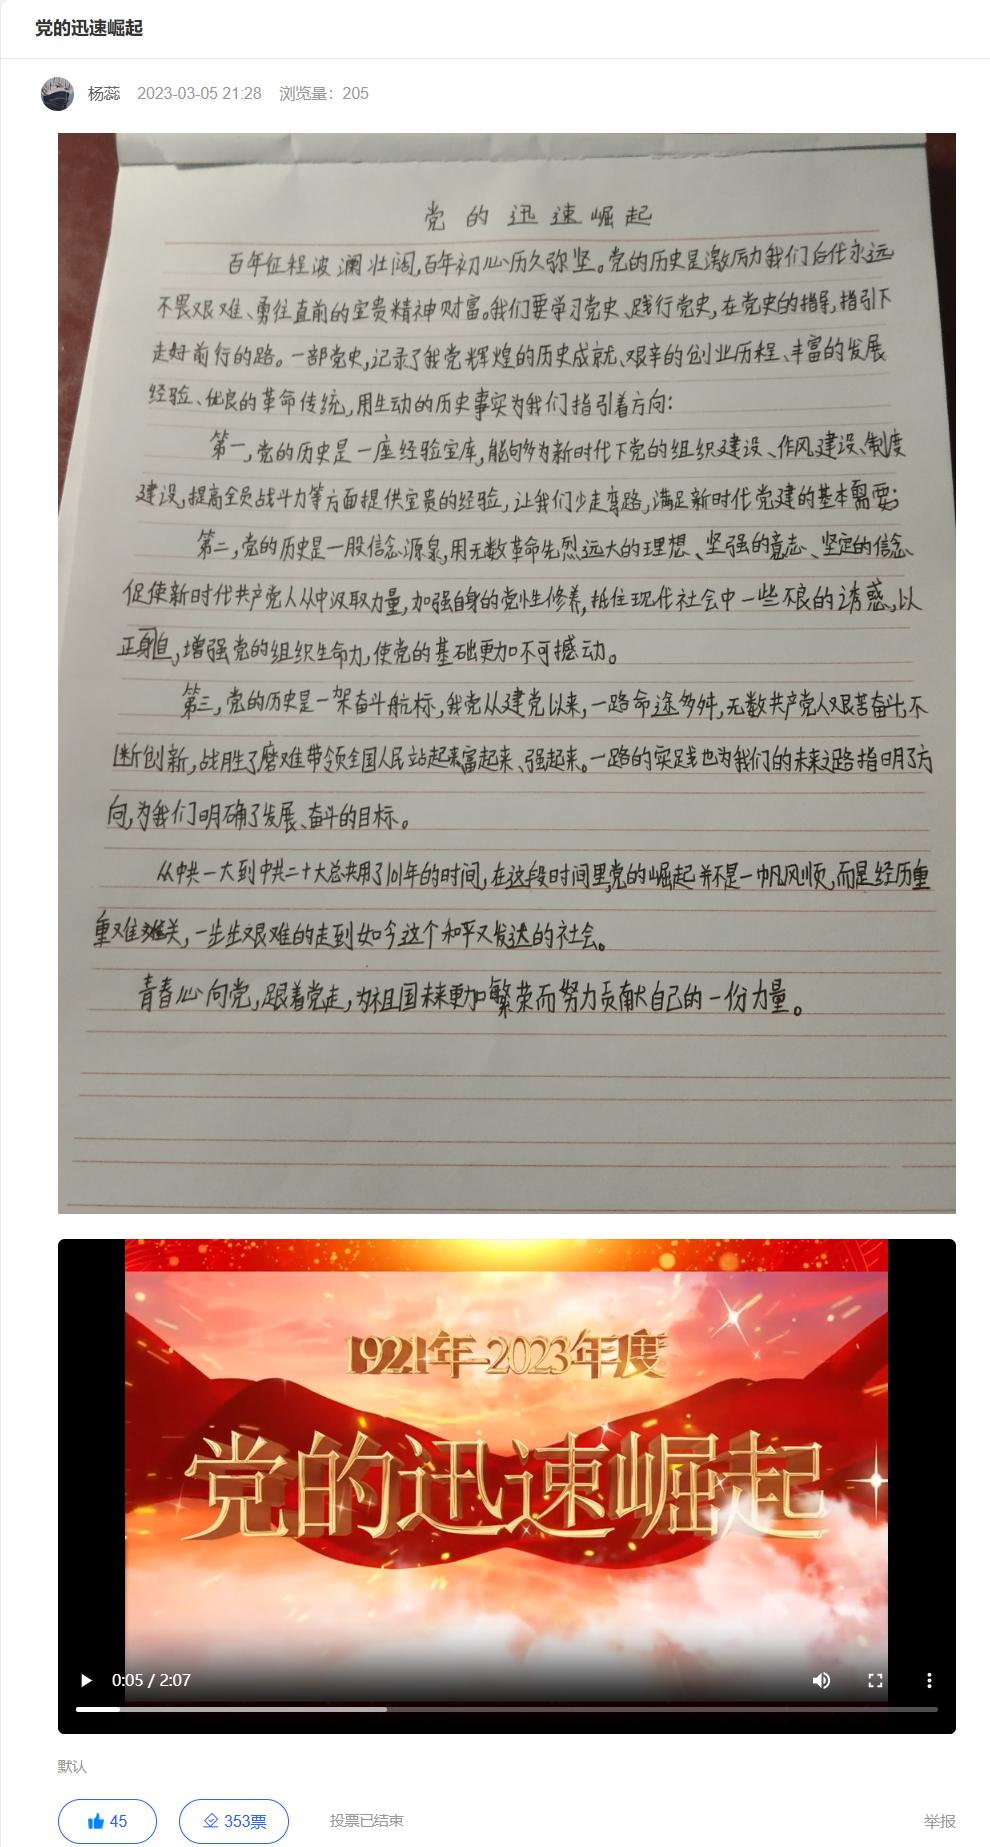 党的迅速崛起
杨蕊 2023-03-05 21:28 浏览量：205
党的迅速崛起
百年征程波澜壮阔,百年初心历久弥坚。党的历史是激励我们后代永远
不畏艰难、勇往直前的宝贵精神财富。我们要学习党史、践行党史,在党史的指导,指引下
走好前行的路。一部党史,记录了我党辉煌的历史成就、艰辛的创业历程、丰富的发展
经验、优良的革命传统,用生动的历史事实为我们指引着方向:
第一,党的历史是一座经验宝库,能够为新时代下党的组织建设、作风建设、制度
建设,提高全员战斗力等方面提供宝贵的经验,让我们少走弯路,满足新时代党建的基本需要;
第二,党的历史是一股信念源泉,用无数革命先烈远大的理想、坚强的意志、坚定的信念、
促使新时代共产党人从中汲取力量,加强自身的党性修养,抵住现代社会中一些不良的诱惑,以
正身直,增强党的组织生命力,使党的基础更加不可撼动。
第三,党的历史是一架奋斗航标,我党从建党以来,一路命途多舛,无数共产党人艰苦奋斗,不
断创新,战胜了磨难带领全国人民站起来富起来、强起来。一路的实践也为我们的未来之路指明了方
向,为我们明确了发展、奋斗的目标。
从中共一大到中共二十大总共用了101年的时间,在这段时间里,党的崛起并不是一帆风顺,而是经历重
重难关,一步步艰难的走到如今这个和平又发达的社会。
青春心向党,跟着党走,为祖国未来更加繁荣而努力贡献自己的一份力量。
1921年-2023年度
党的迅速崛起
0:05 / 2:07
默认
45 353票 投票已结束 举报